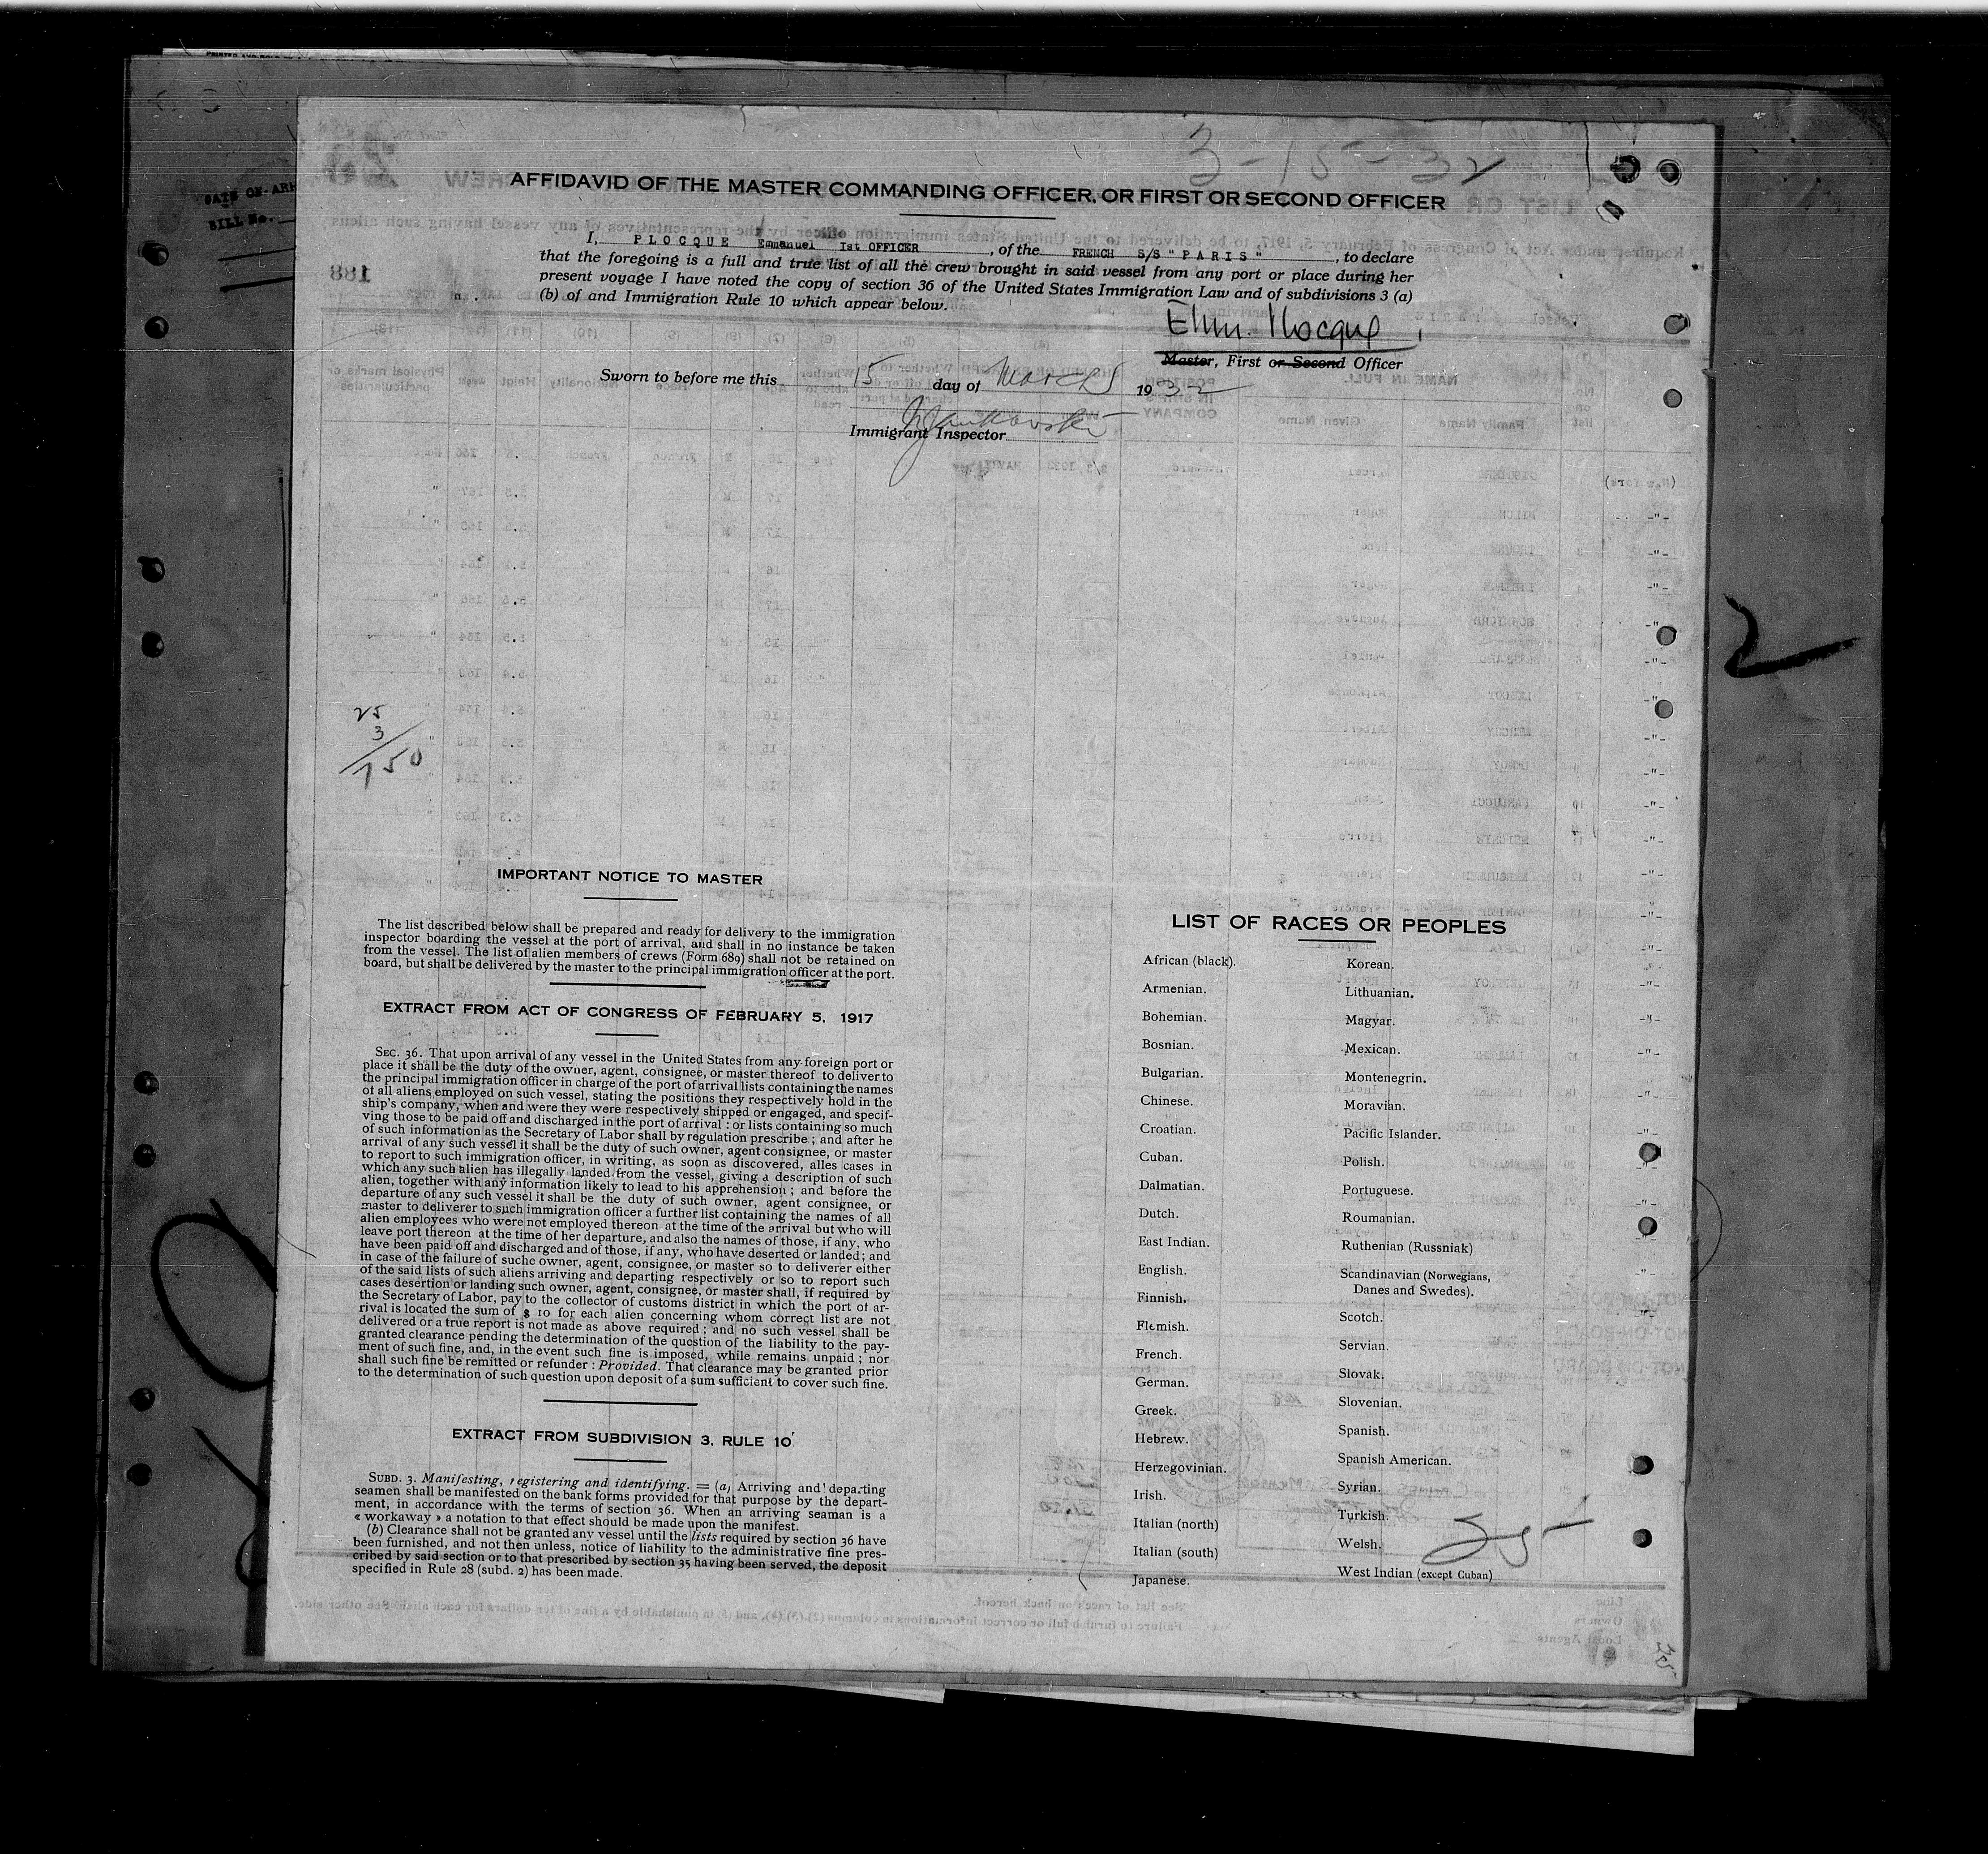 3-15-32
AFFIDAVID OF THE MASTER COMMANDING OFFICER, OR FIRST OR SECOND OFFICER
I, PLOCQUE Emmanuel Ist OFFICER, of the FRENCH S/S "PARIS", to declare
that the foregoing is a full and true list of all the crew brought in said vessel from any port or place during her
present voyage I have noted the copy of section 36 of the United States Immigration Law and of subdivisions 3 (a)
(b) of and Immigration Rule 10 which appear below.
Emm. Plocque
Master, First or Second Officer
Sworn to before me this 15 day of March 1932
Immigrant Inspector
DATE OF ARR
BILL No.
188
2
25
3
750
IMPORTANT NOTICE TO MASTER
The list described below shall be prepared and ready for delivery to the immigration
inspector boarding the vessel at the port of arrival, and shall in no instance be taken
from the vessel. The list of alien members of crews (Form 689) shall not be retained on
board, but shall be delivered by the master to the principal immigration officer at the port.
EXTRACT FROM ACT OF CONGRESS OF FEBRUARY 5, 1917
SEC. 36. That upon arrival of any vessel in the United States from any foreign port or
place it shall be the duty of the owner, agent, consignee, or master thereof to deliver to
the principal immigration officer in charge of the port of arrival lists containing the names
of all aliens employed on such vessel, stating the positions they respectively hold in the
ship's company, when and were they were respectively shipped or engaged, and specif-
ving those to be paid off and discharged in the port of arrival : or lists containing so much
of such information as the Secretary of Labor shall by regulation prescribe ; and after he
arrival of any such vessel it shall be the duty of such owner, agent consignee, or master
to report to such immigration officer, in writing, as soon as discovered, alles cases in
which any such alien has illegally landed from the vessel, giving a description of such
alien, together with any information likely to lead to his apprehension ; and before the
departure of any such vessel it shall be the duty of such owner, agent consignee, or
master to deliverer to such immigration officer a further list containing the names of all
alien employees who were not employed thereon at the time of the arrival but who will
leave port thereon at the time of her departure, and also the names of those, if any, who
have been paid off and discharged and of those, if any, who have deserted or landed ; and
in case of the failure of suche owner, agent, consignee, or master so to deliverer either
of the said lists of such aliens arriving and departing respectively or so to report such
cases desertion or landing such owner, agent, consignee, or master shall, if required by
the Secretary of Labor, pay to the collector of customs district in which the port of ar-
rival is located the sum of $ 10 for each alien concerning whom correct list are not
delivered or a true report is not made as above required ; and no such vessel shall be
granted clearance pending the determination of the question of the liability to the pay-
ment of such fine, and, in the event such fine is imposed, while remains unpaid ; nor
shall such fine be remitted or refunder : Provided. That clearance may be granted prior
to the determination of such question upon deposit of a sum sufficient to cover such fine.
EXTRACT FROM SUBDIVISION 3, RULE 10
SUBD. 3. Manifesting, registering and identifying. = (a) Arriving and departing
seamen shall be manifested on the bank forms provided for that purpose by the depart-
ment, in accordance with the terms of section 36. When an arriving seaman is a
« workaway » a notation to that effect should be made upon the manifest.
(b) Clearance shall not be granted any vessel until the lists required by section 36 have
been furnished, and not then unless, notice of liability to the administrative fine pres-
cribed by said section or to that prescribed by section 35 having been served, the deposit
specified in Rule 28 (subd. 2) has been made.
LIST OF RACES OR PEOPLES
African (black).
Armenian.
Bohemian.
Bosnian.
Bulgarian.
Chinese.
Croatian.
Cuban.
Dalmatian.
Dutch.
East Indian.
English.
Finnish.
Flemish.
French.
German.
Greek.
Hebrew.
Herzegovinian.
Irish.
Italian (north)
Italian (south)
Japanese.
Korean.
Lithuanian.
Magyar.
Mexican.
Montenegrin.
Moravian.
Pacific Islander.
Polish.
Portuguese.
Roumanian.
Ruthenian (Russniak)
Scandinavian (Norwegians,
Danes and Swedes).
Scotch.
Servian.
Slovak.
Slovenian.
Spanish.
Spanish American.
Syrian.
Turkish.
Welsh.
West Indian (except Cuban)